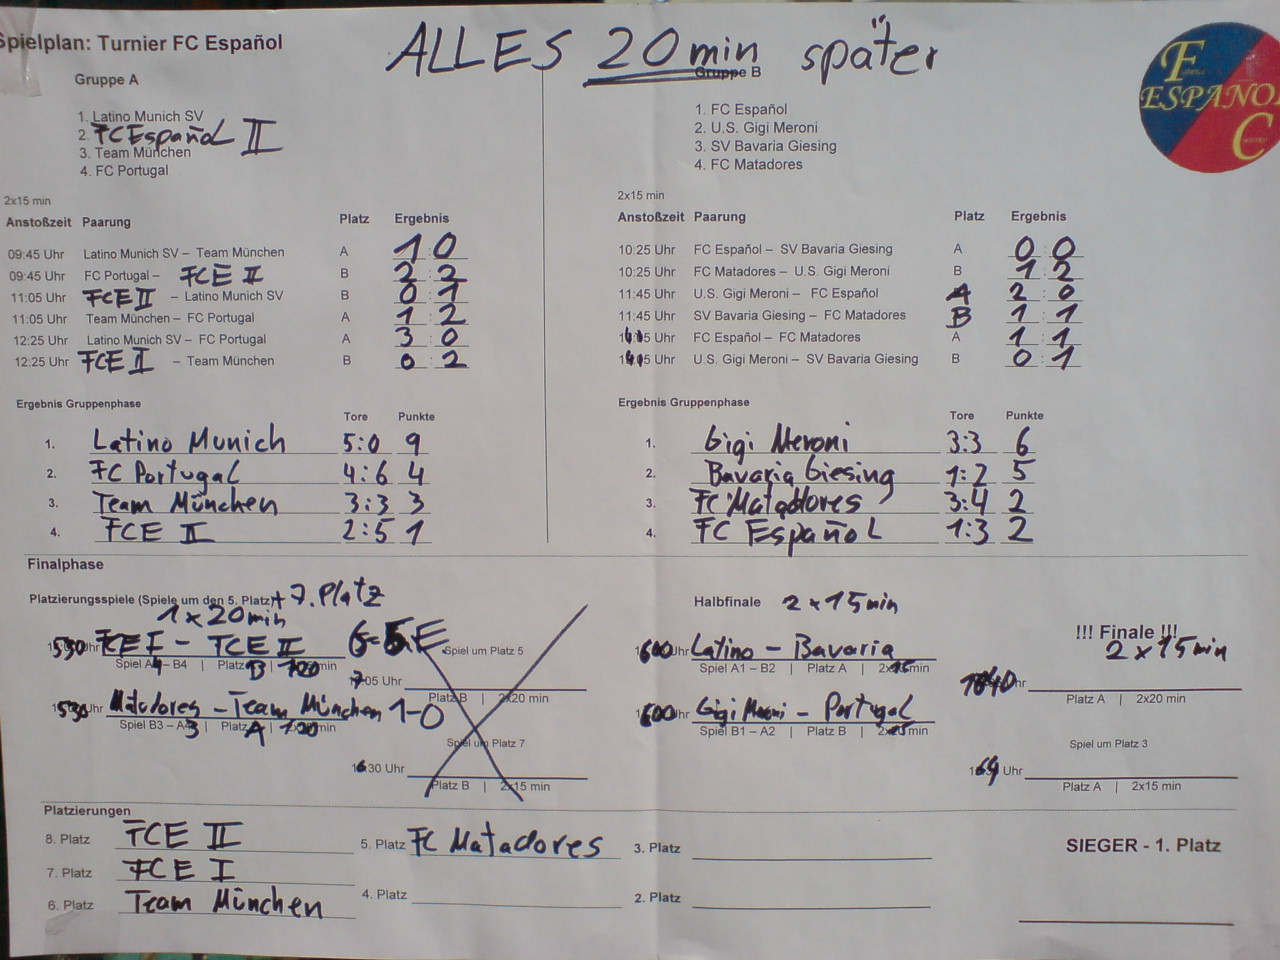 Spielplan: Turnier FC Español
ALLES 20 min später
Gruppe A
1. Latino Munich SV
2. FC Español II
3. Team München
4. FC Portugal
Gruppe B
1. FC Español
2. U.S. Gigi Meroni
3. SV Bavaria Giesing
4. FC Matadores
F
ESPAÑO
C
2x15 min
Anstoßzeit Paarung Platz Ergebnis
09:45 Uhr Latino Munich SV – Team München A 1 : 0
09:45 Uhr FC Portugal – FCE II B 2 : 2
11:05 Uhr FCE II – Latino Munich SV B 0 : 1
11:05 Uhr Team München – FC Portugal A 1 : 2
12:25 Uhr Latino Munich SV – FC Portugal A 3 : 0
12:25 Uhr FCE II – Team München B 0 : 2
2x15 min
Anstoßzeit Paarung Platz Ergebnis
10:25 Uhr FC Español – SV Bavaria Giesing A 0 : 0
10:25 Uhr FC Matadores – U.S. Gigi Meroni B 1 : 2
11:45 Uhr U.S. Gigi Meroni – FC Español A 2 : 0
11:45 Uhr SV Bavaria Giesing – FC Matadores B 1 : 1
Uhr FC Español – FC Matadores A 1 : 1
Uhr U.S. Gigi Meroni – SV Bavaria Giesing B 0 : 1
Ergebnis Gruppenphase
Tore Punkte
1. Latino Munich 5:0 9
2. FC Portugal 4:6 4
3. Team München 3:3 3
4. FCE II 2:5 1
Ergebnis Gruppenphase
Tore Punkte
1. Gigi Meroni 3:3 6
2. Bavaria Giesing 1:2 5
3. FC Matadores 3:4 2
4. FC Español 1:3 2
Finalphase
Platzierungsspiele (Spiele um den 5. Platz) + 7. Platz
1 x 20 min
FCE I – FCE II
Spiel A4 – B4 | Platz B |
Matadores – Team München 1-0
Spiel B3 – A3 | Platz A |
Spiel um Platz 5
05 Uhr
Platz B | 2x20 min
Spiel um Platz 7
1630 Uhr
Platz B | 2x15 min
Halbfinale 2 x 15 min
1600 Uhr Latino – Bavaria
Spiel A1 – B2 | Platz A | 2x15 min
1600 Uhr Gigi Meroni – Portugal
Spiel B1 – A2 | Platz B | 2x15 min
!!! Finale !!!
2 x 15 min
Platz A | 2x20 min
Spiel um Platz 3
Uhr
Platz A | 2x15 min
Platzierungen
8. Platz FCE II
7. Platz FCE I
6. Platz Team München
5. Platz FC Matadores
4. Platz
3. Platz
2. Platz
SIEGER - 1. Platz